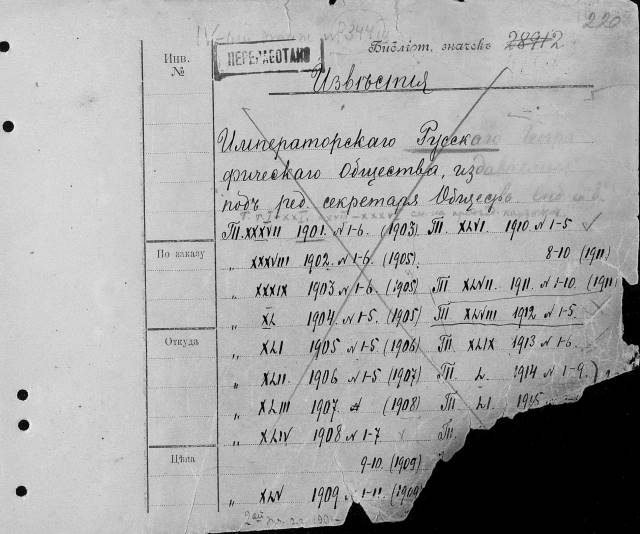 220
IV
Библіот. значекъ 28912
Инв. №
ПЕРЕРАБОТАНО
Извѣстія
Императорскаго Русскаго Геогра
фическаго Общества, издаваемыя
подъ ред. секретаря Общества
Т. XXXVII 1901. N 1-6. (1903) Т. XLVI. 1910. N 1-5
По заказу
" XXXVIII 1902. N 1-6. (1905). 8-10 (1911)
" XXXIX 1903 N 1-6. (1905) Т. XLVII. 1911. N 1-10. (1911)
" XL 1904. N 1-5. (1905) Т. XLVIII 1912 N 1-5.
Откуда
" XLI 1905 N 1-5 (1906) Т. XLIX 1913 N 1-6
" XLII. 1906 N 1-5 (1907) Т. L. 1914 N 1-9.
" XLIII 1907 (1908) Т. LI. 1915
" XLIV 1908 N 1-7 Т.
Цѣна
9-10. (1909)
" XLV 1909 N 1-11. (1909